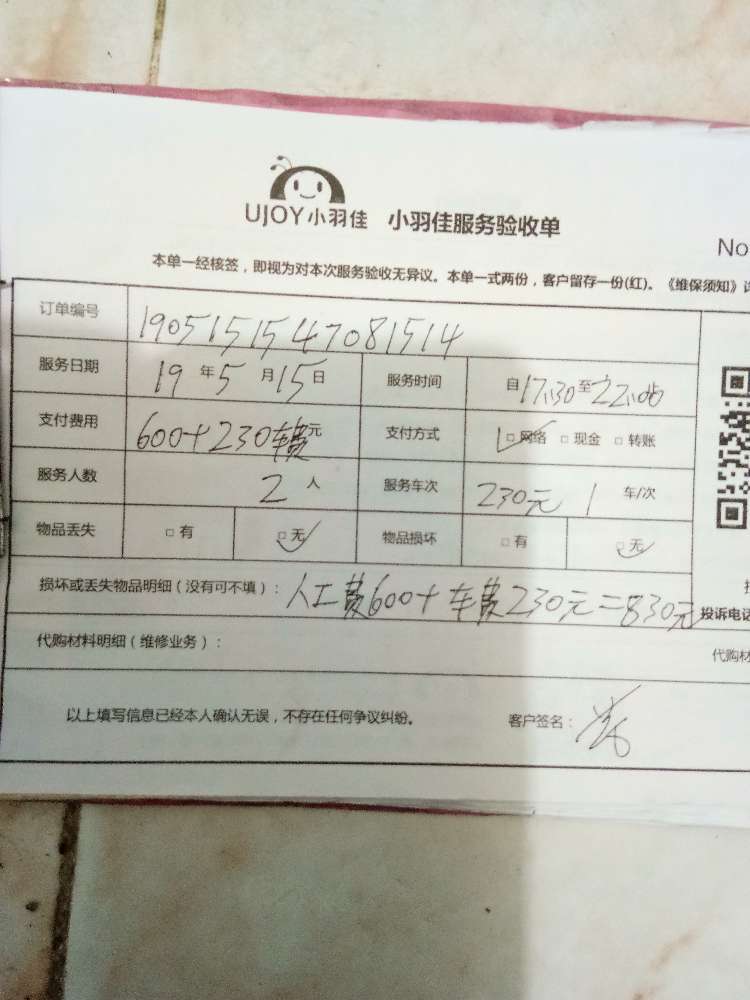 UJOY小羽佳 小羽佳服务验收单
No
本单一经核签，即视为对本次服务验收无异议。本单一式两份，客户留存一份(红)。《维保须知》
订单编号 1905151547081514
服务日期 19 年 5 月 15 日 服务时间 自 17:30 至 22:00
支付费用 600+230车费元 支付方式 □ 网络 □ 现金 □ 转账
服务人数 2 人 服务车次 230元 1 车/次
物品丢失 □ 有 □ 无 物品损坏 □ 有 □ 无
损坏或丢失物品明细（没有可不填）： 人工费600+车费230元=830元 投诉电话
代购材料明细（维修业务）： 代购材
以上填写信息已经本人确认无误，不存在任何争议纠纷。 客户签名：